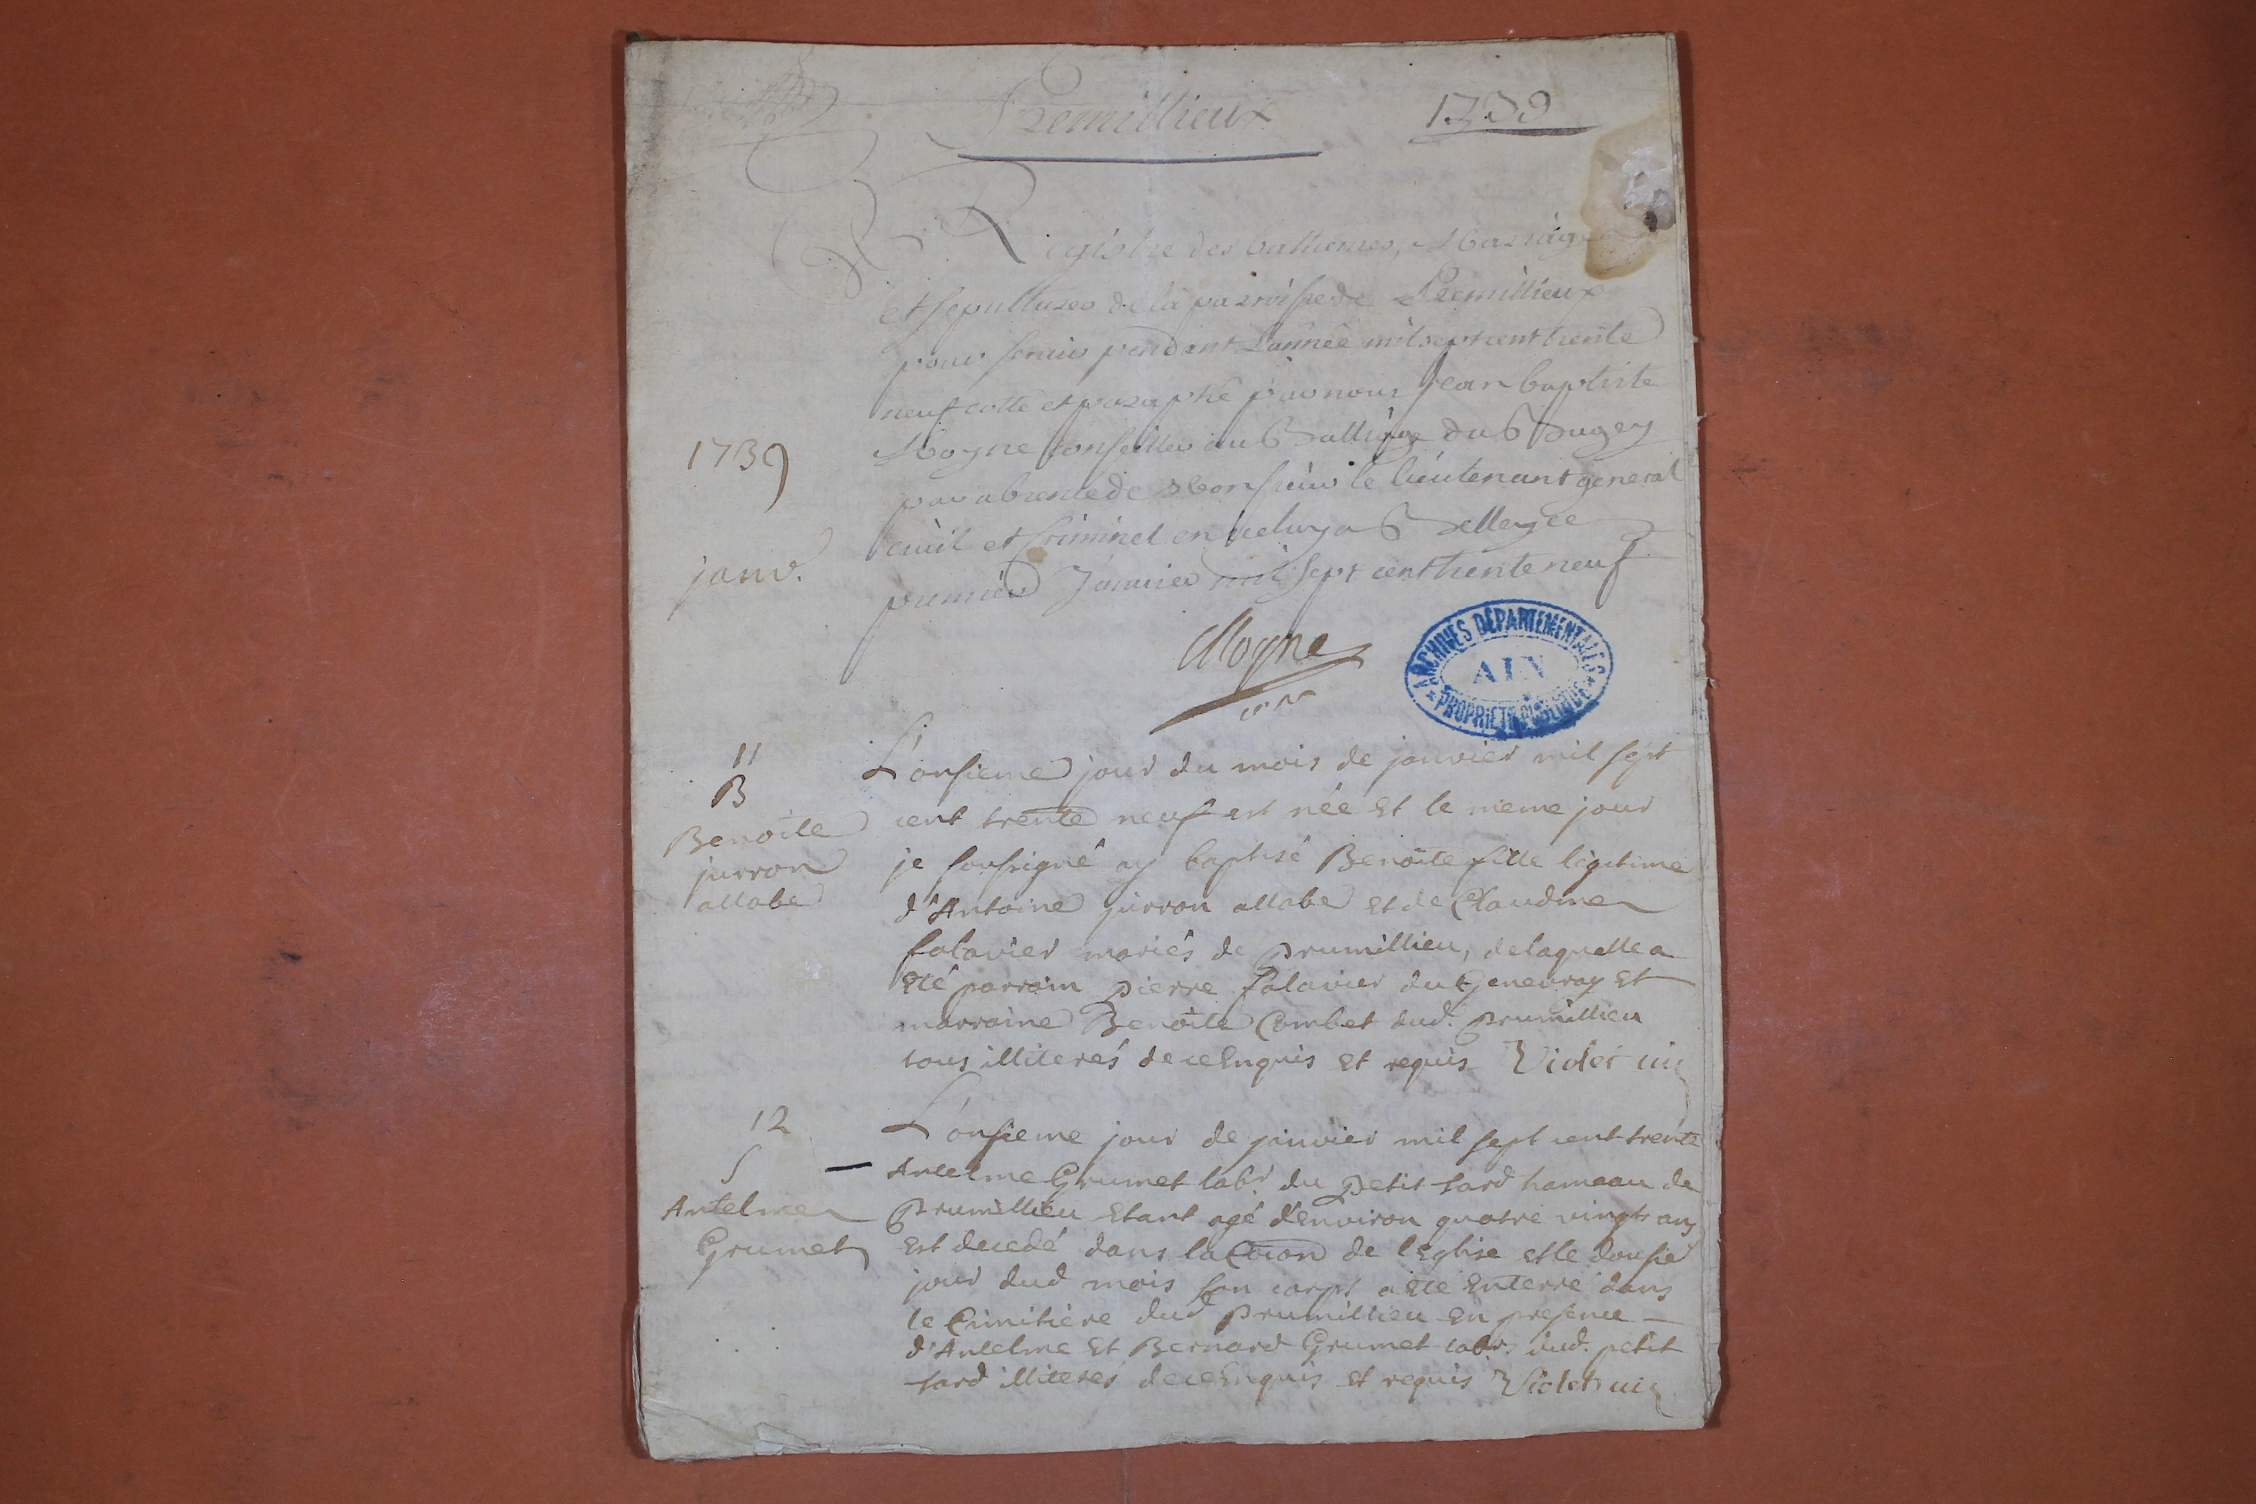 Premillieux 1739
Registre des battemes, Mariages
et sepultures de la parroisse de Premillieux
pour servir pendant L'année mil sept cent trente
neuf cotté et paraphé par nous Jean baptiste
Mogne conseiller au Balliage du Bugey
par absence de Monsieur le lieutenant general
civil et criminel en iceluy a Belley ce
premier Janvier mil sept cent trente neuf
1739
janv.
Mogne
ARCHIVES DÉPARTEMENTALES
AIN
PROPRIÉTÉ PUBLIQUE
11
B
Benoite
jurron
allabe
L'onsieme jour du mois de janvier mil sept
cent trente neuf est née et le meme jour
je soussigné ay baptisé Benoite fille légitime
d'Antoine jurron allabe et de Claudine
falavier mariés de Prumillieu, de laquelle a
eté parrain pierre falavier du Genevray et
marraine Benoite Combet dud. Prumillieu
tous illiterés de ce Enquis et requis Violet
12
S
Antelme
Grumet
L'onsieme jour de janvier mil sept cent trente
Antelme Grumet labr. du Petit tard hameau de
Prumillieu Etant agé d'Environ quatre vingt ans
est decedé dans la de l'Eglise et le dousie
jour dud mois son corps a eté Enterré dans
le Cimitiere dud Prumillieu en presence
d'Antelme et Bernard Grumet labrs. dud. petit
tard illiterés de ce Enquis et requis Violet